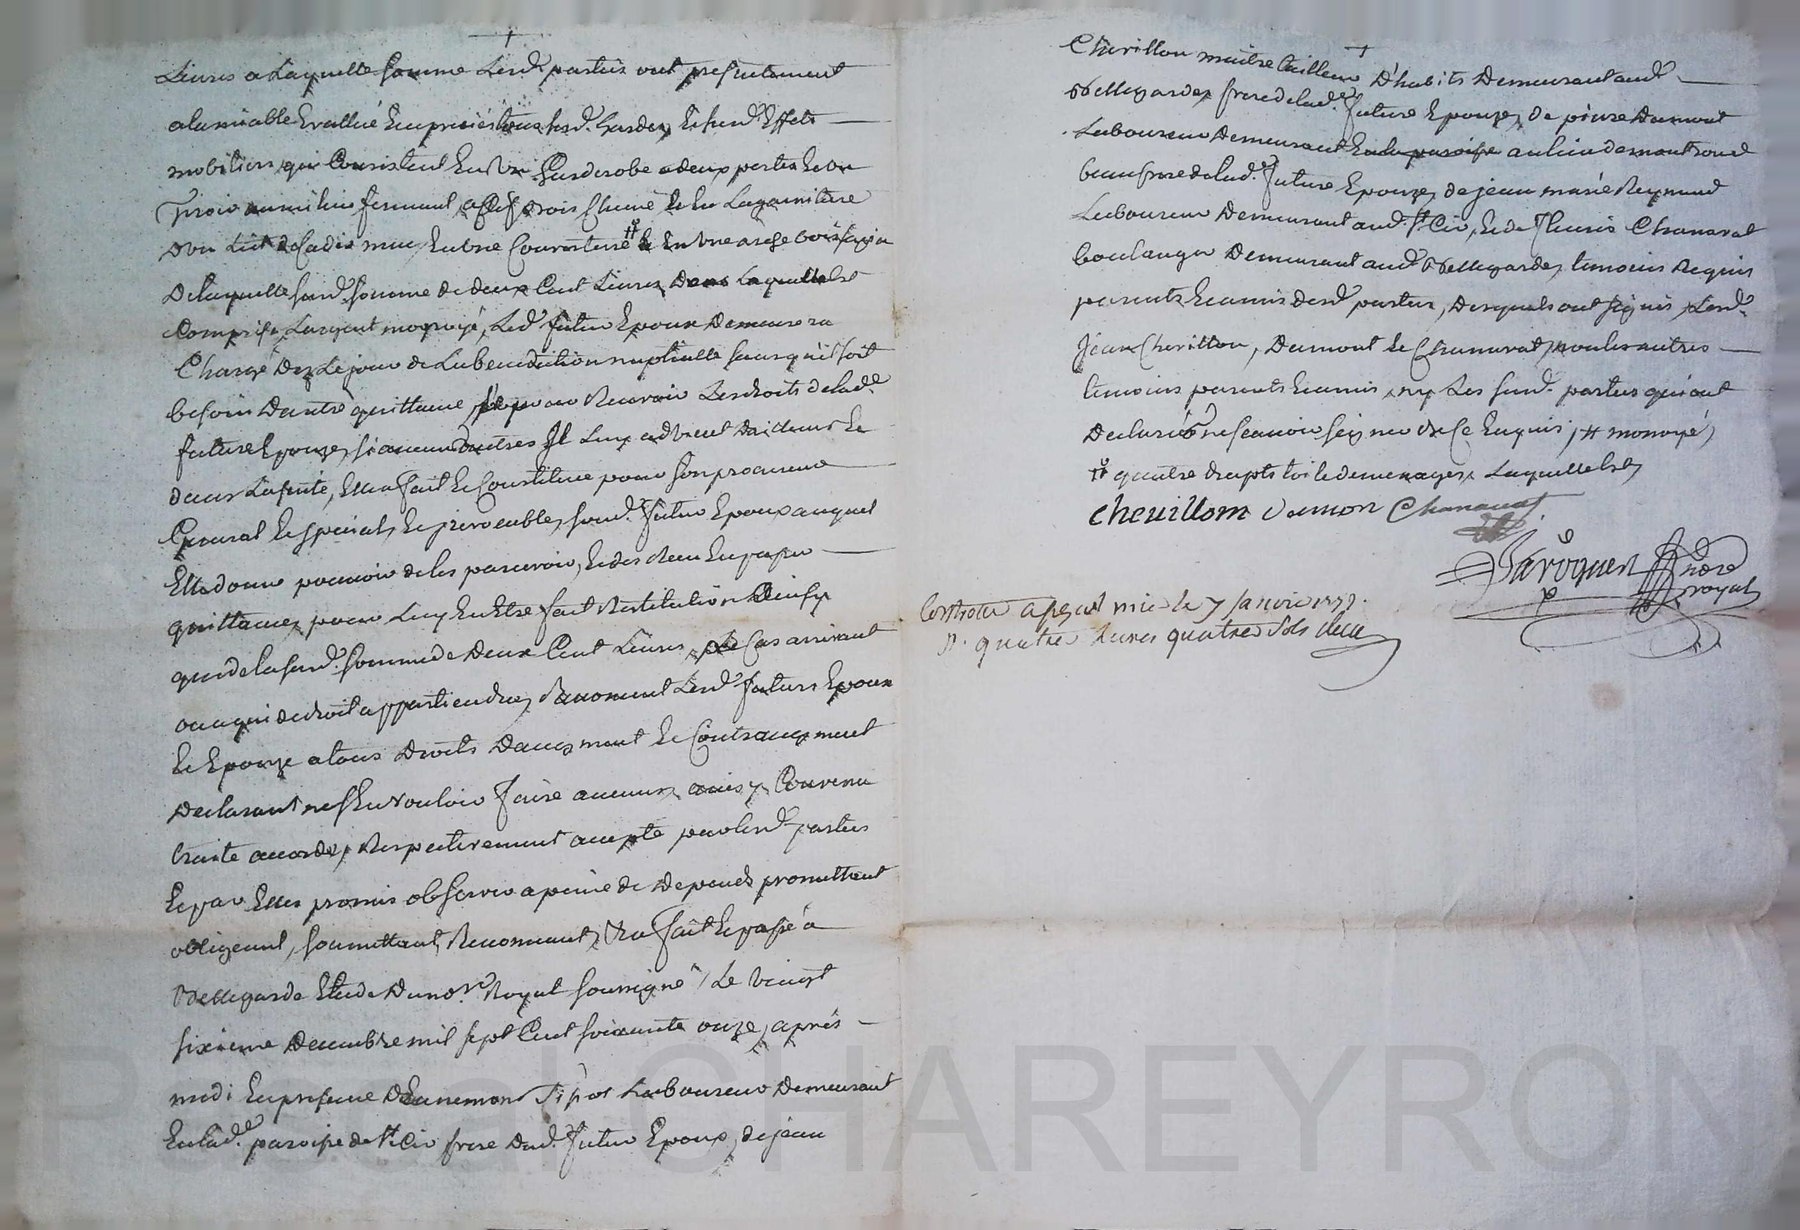 Livres a Laquelle somme Lesd. parties ont presentement
alamiable Evallué Lesd. hardes, & susd. Effets
mobiliers, qui Consistent En Un Garderobe a deux portes & un
Tiroir au milieu fermant a Clef bois Chene & En La garniture
D'un Lit de Cadis En Une Couverture # & En Une arche bois Sapin
De laquelle susd. somme de deux Cent Livres Dans Laquelle est
Comprise Largent monoyé, Led. futur Epoux Demeurera
Chargé Dez Le jour de La benediction nuptialle sans quil soit
besoin Dautre quittance, & pour Recevoir Les droits de lad.e
future Epouze, si aucuns autres Il Luy advient Dailleurs &
dans La suitte, Elle a fait & Constitué pour son procureur
General & special, & jrrevocable, sond. futur Epoux auquel
Elle donne pouvoir de les percevoir, & des Reçu En passer
quittance, pour Luy En Etre fait Restitution Ainsy
que de la susd. somme de Deux Cent Livres, Le Cas arrivant
ou a qui de droit appartiendra, Renoncent Lesd. futurs Epoux
& Epouze a tous Droits Daugment & Contraugment
Declarant ne s'En Vouloir faire aucuns, ainsy Convenu
traité accordé, & Respectivement accepté par lesd. parties
& par Elles promis observer a peine de Depends promettant
obligeant, soumettant, Renonceant, Xra fait & passé a
Bellegarde Etude Du nore. Royal soussigné, Le Vingt
sixieme Decembre mil sept Cent soixante onze, aprés
midi En presence D'annemond Laboureur Demeurant
En lad.e paroisse de St. Cir frere Dud. futur Epoux, de jean
Chevillon maitre tailleur D'habits Demeurant aud.
Bellegarde, frere de lad.e future Epouze, de pierre Dumont
Laboureur Demeurant En la paroisse au lieu de montrond
beaufrere de lad.e future Epouze, de jean marie Reymond
Laboureur Demeurant aud. St. Cir, & de fleuris Chanavat
boulanger Demeurant aud. Bellegarde, temoins Requis
parents & amis desd. parties, Desquels ont signés, Lesd.
Jean Chevillon, Dumont & Chanavat, non les autres
temoins parents & amis, ny Les susd. parties qui ont
Declarés ne scavoir signer de Ce Enquis, # monoyé,
# quatre draps toile de menage, Laquelle est,
chevillom Dumon Chanavat
Paroquet nore royal
Controllé a le 7 Janvier 1772.
R. quatre Livres quatre sols